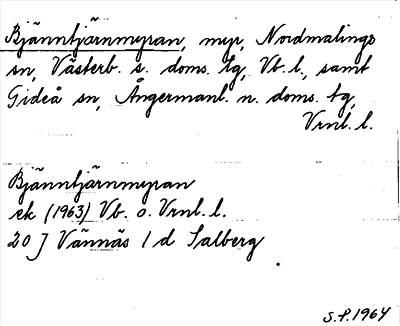 Bjänntjärnmyran, myr, Nordmalings
sn, Västerb. s. doms. tg, Vb. l., samt
Gideå sn, Ångermanl. n. doms. tg,
Vrnl. l.
Bjänntjärnmyran
ek (1963) Vb. o. Vrnl. l.
20 J Vännäs 1 d Salberg
S.P. 1964